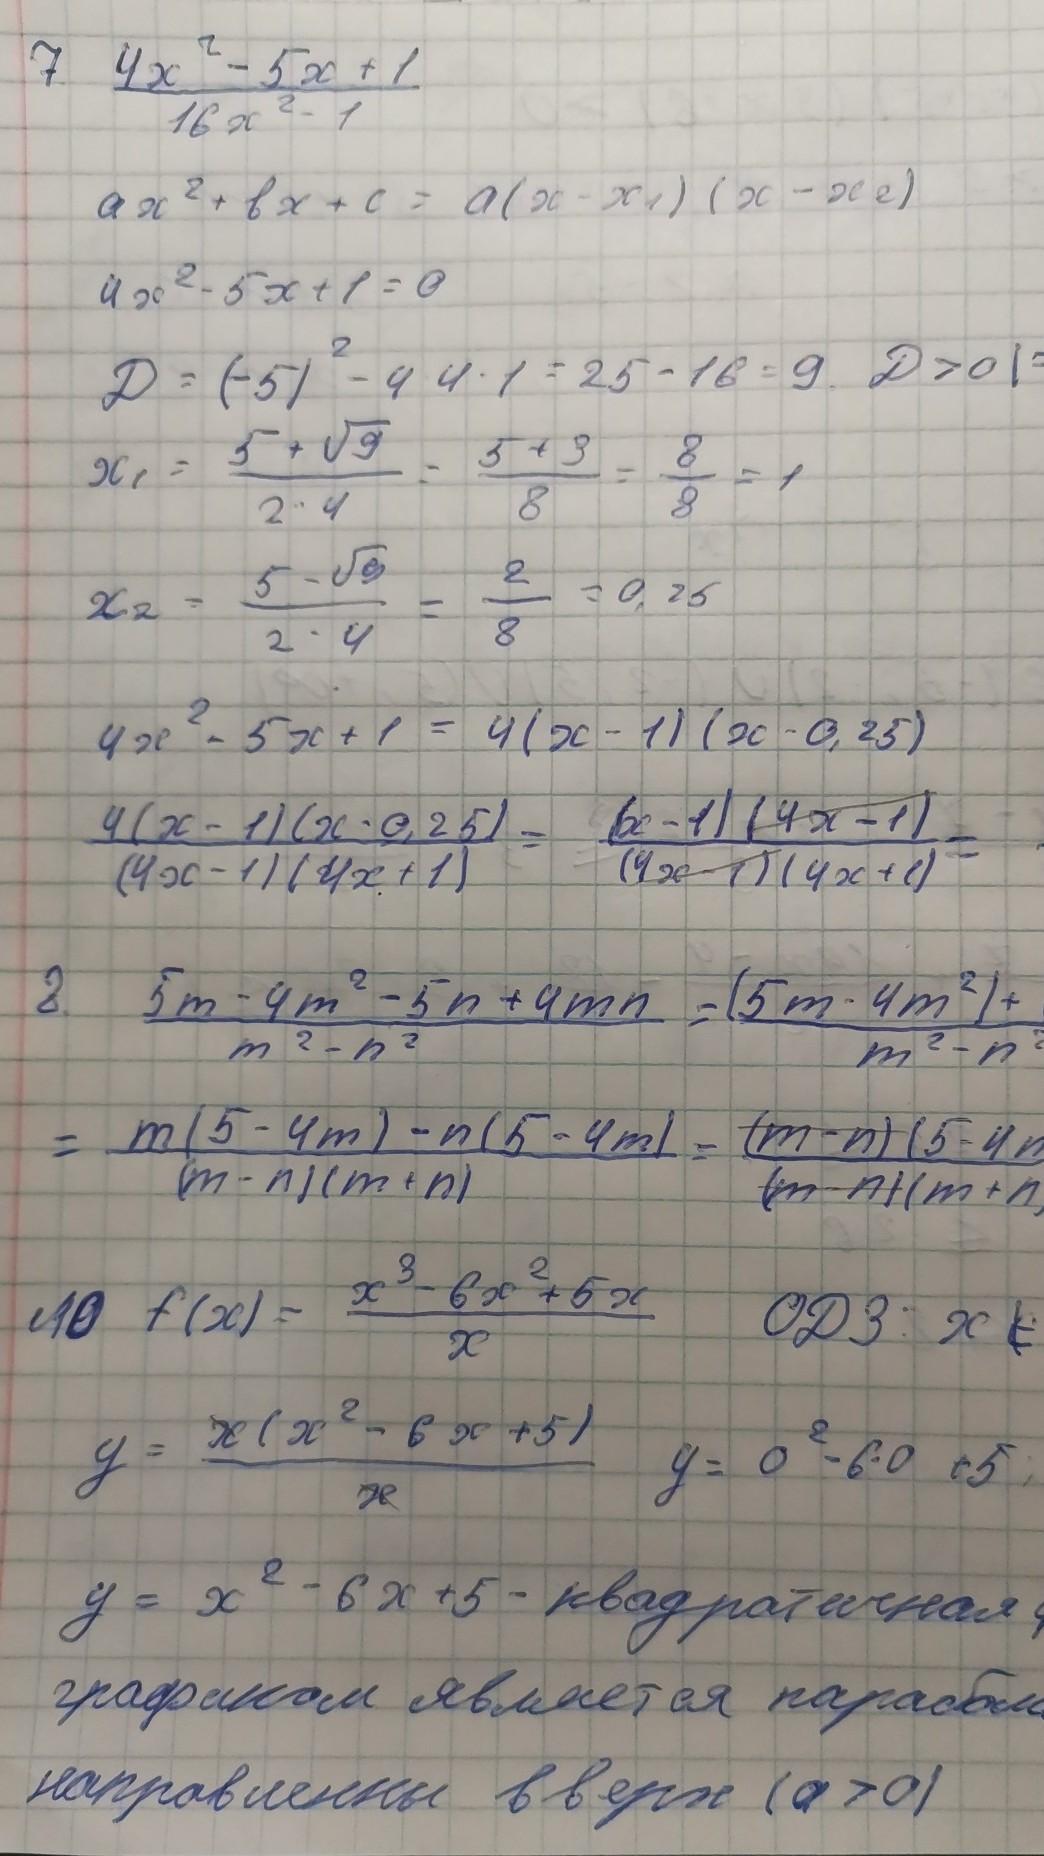 7 (4x² - 5x + 1)/(16x² - 1)
ax² + bx + c = a(x - x₁)(x - x₂)
4x² - 5x + 1 = 0
D = (-5)² - 4 4·1 = 25 - 16 = 9. D > 0
x₁ = (5 + √9)/(2·4) = (5 + 3)/8 = 8/8 = 1
x₂ = (5 - √9)/(2·4) = 2/8 = 0,25
4x² - 5x + 1 = 4(x - 1)(x - 0,25)
4(x - 1)(x - 0,25)/(4x - 1)(4x + 1) = (x - 1)(4x - 1)/(4x - 1)(4x + 1) =
8. (5m - 4m² - 5n + 4mn)/(m² - n²) = (5m - 4m²) + /m² - n²
= (m(5 - 4m) - n(5 - 4m))/(m - n)(m + n) = (m - n)(5 - 4m/(m - n)(m + n)
10 f(x) = (x³ - 6x² + 5x)/x ОДЗ: x
y = x(x² - 6x + 5)/x y = 0² - 6·0 + 5
y = x² - 6x + 5 - квадратичная
графиком является
направленны вверх (a > 0)